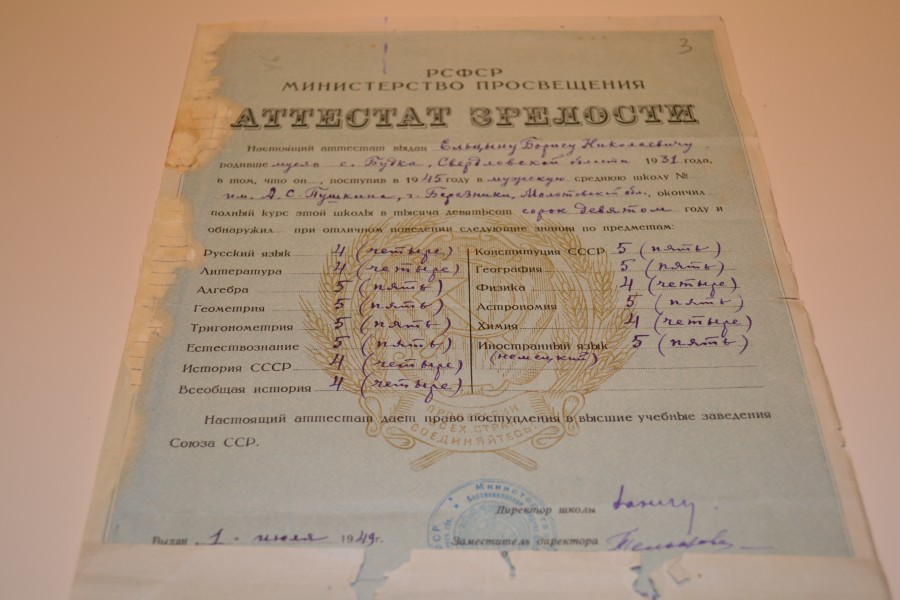 3
РСФСР
МИНИСТЕРСТВО ПРОСВЕЩЕНИЯ
АТТЕСТАТ ЗРЕЛОСТИ
Настоящий аттестат выдан Ельцину Борису Николаевичу
родившемуся с. Будка, Свердловской области 1931 года,
в том, что он, поступив в 1945 году в мужскую среднюю школу №
им. А. С. Пушкина, г. Березники, Молотовской обл., окончил
полный курс этой школы в тысяча девятьсот сорок девятом году и
обнаружил при отличном поведении следующие знания по предметам:
Русский язык 4 (четыре)
Литература 4 (четыре)
Алгебра 5 (пять)
Геометрия 5 (пять)
Тригонометрия 5 (пять)
Естествознание 5 (пять)
История СССР 4 (четыре)
Всеобщая история 4 (четыре)
Конституция СССР 5 (пять)
География 5 (пять)
Физика 4 (четыре)
Астрономия 5 (пять)
Химия 4 (четыре)
Иностранный язык 5 (пять)
(немецкий)
ПРОЛЕТАРИИ
ВСЕХ СТРАН
СОЕДИНЯЙТЕСЬ!
Настоящий аттестат дает право поступления в высшие учебные заведения
Союза ССР.
Министерство
РСФСР
Директор школы
Выдан 1 июля 1949 г.
Заместитель директора